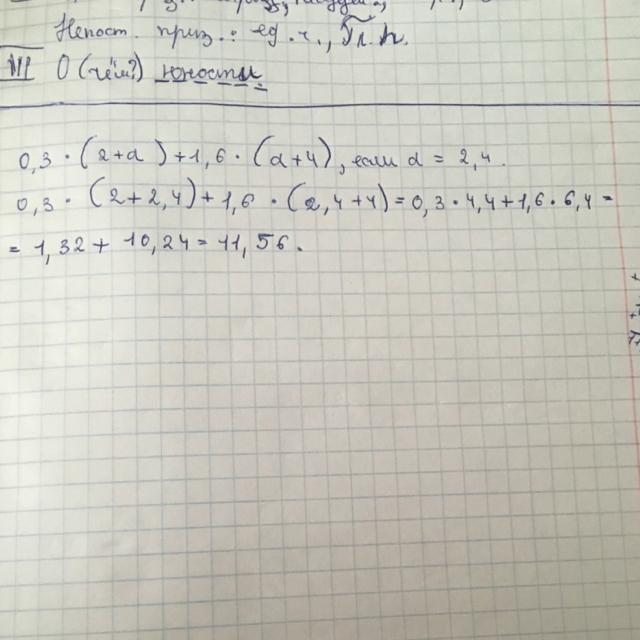 Непост. приз.: ед. ч.,
III О (чём?) юности
0,3 · (2+a) + 1,6 · (a+4), если a = 2,4.
0,3 · (2+2,4) + 1,6 · (2,4+4) = 0,3 · 4,4 + 1,6 · 6,4 =
= 1,32 + 10,24 = 11,56.